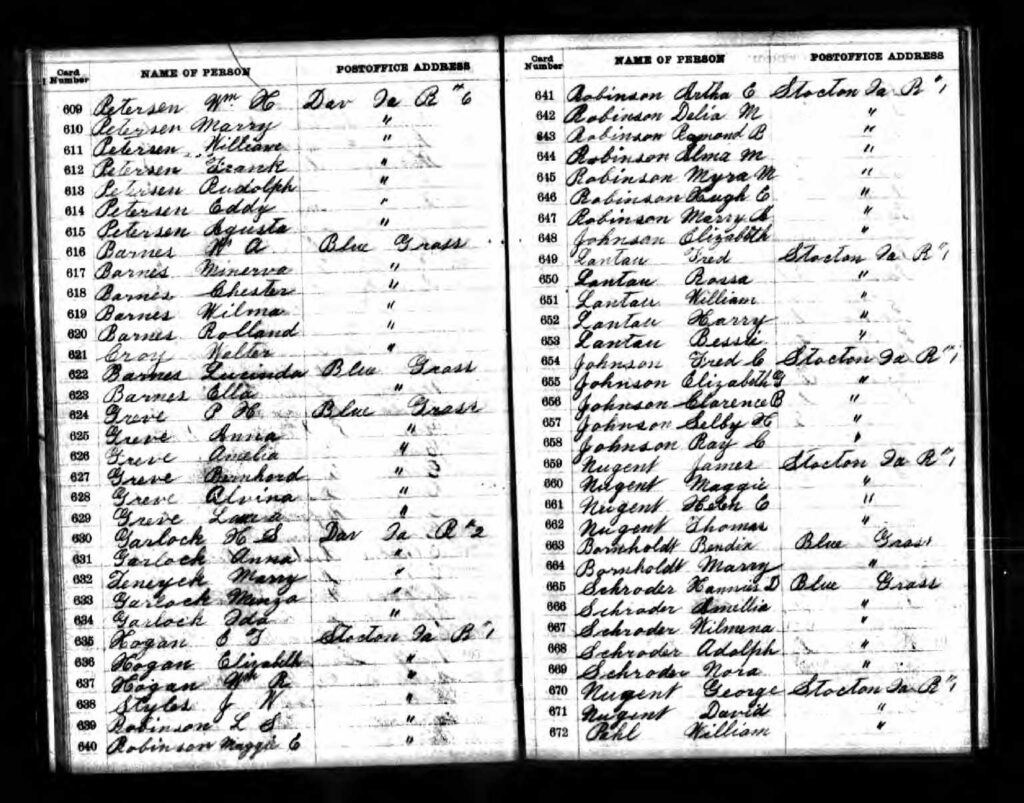 Card Number NAME OF PERSON POSTOFFICE ADDRESS
609 Petersen Wm H Dav Ia R #6
610 Petersen Marry "
611 Petersen William "
612 Petersen Frank "
613 Petersen Rudolph "
614 Petersen Eddy "
615 Petersen Agusta "
616 Barnes Wm A Blue Grass
617 Barnes Minerva "
618 Barnes Chester "
619 Barnes Wilma "
620 Barnes Rolland "
621 Croy Walter "
622 Barnes Lucinda Blue Grass
623 Barnes Ella "
624 Greve P H Blue Grass
625 Greve Anna "
626 Greve Amelia "
627 Greve Bernhord "
628 Greve Alvina "
629 Greve "
630 Garlock H S Dav Ia R #2
631 Garlock Anna "
632 Teneyck Marry "
633 Garlock "
634 Garlock Ida "
635 Hogan E F Stocton Ia R #1
636 Hogan Elizabeth "
637 Hogan Wm R "
638 Styles J W "
639 Robinson L S "
640 Robinson Maggie E "
Card Number NAME OF PERSON POSTOFFICE ADDRESS
641 Robinson Artha E Stocton Ia R #1
642 Robinson Delia M "
643 Robinson Ramond B "
644 Robinson Alma M "
645 Robinson Myra M "
646 Robinson Hugh E "
647 Robinson Marry A "
648 Johnson Elizabeth "
649 Lantau Fred Stocton Ia R #1
650 Lantau Rossa "
651 Lantau William "
652 Lantau Harry "
653 Lantau Bessie "
654 Johnson Fred C Stocton Ia R #1
655 Johnson Elizabeth G "
656 Johnson Clarence B "
657 Johnson Selby H "
658 Johnson Ray C "
659 Nugent James Stocton Ia R #1
660 Nugent Maggie "
661 Nugent Helen E "
662 Nugent Thomas "
663 Bornholdt Bendix Blue Grass
664 Bornholdt Marry "
665 Schroder Hannus D Blue Grass
666 Schroder Amellia "
667 Schroder Wilmena "
668 Schroder Adolph "
669 Schroder Nora "
670 Nugent George Stocton Ia R #1
671 Nugent David "
672 Pehl William "